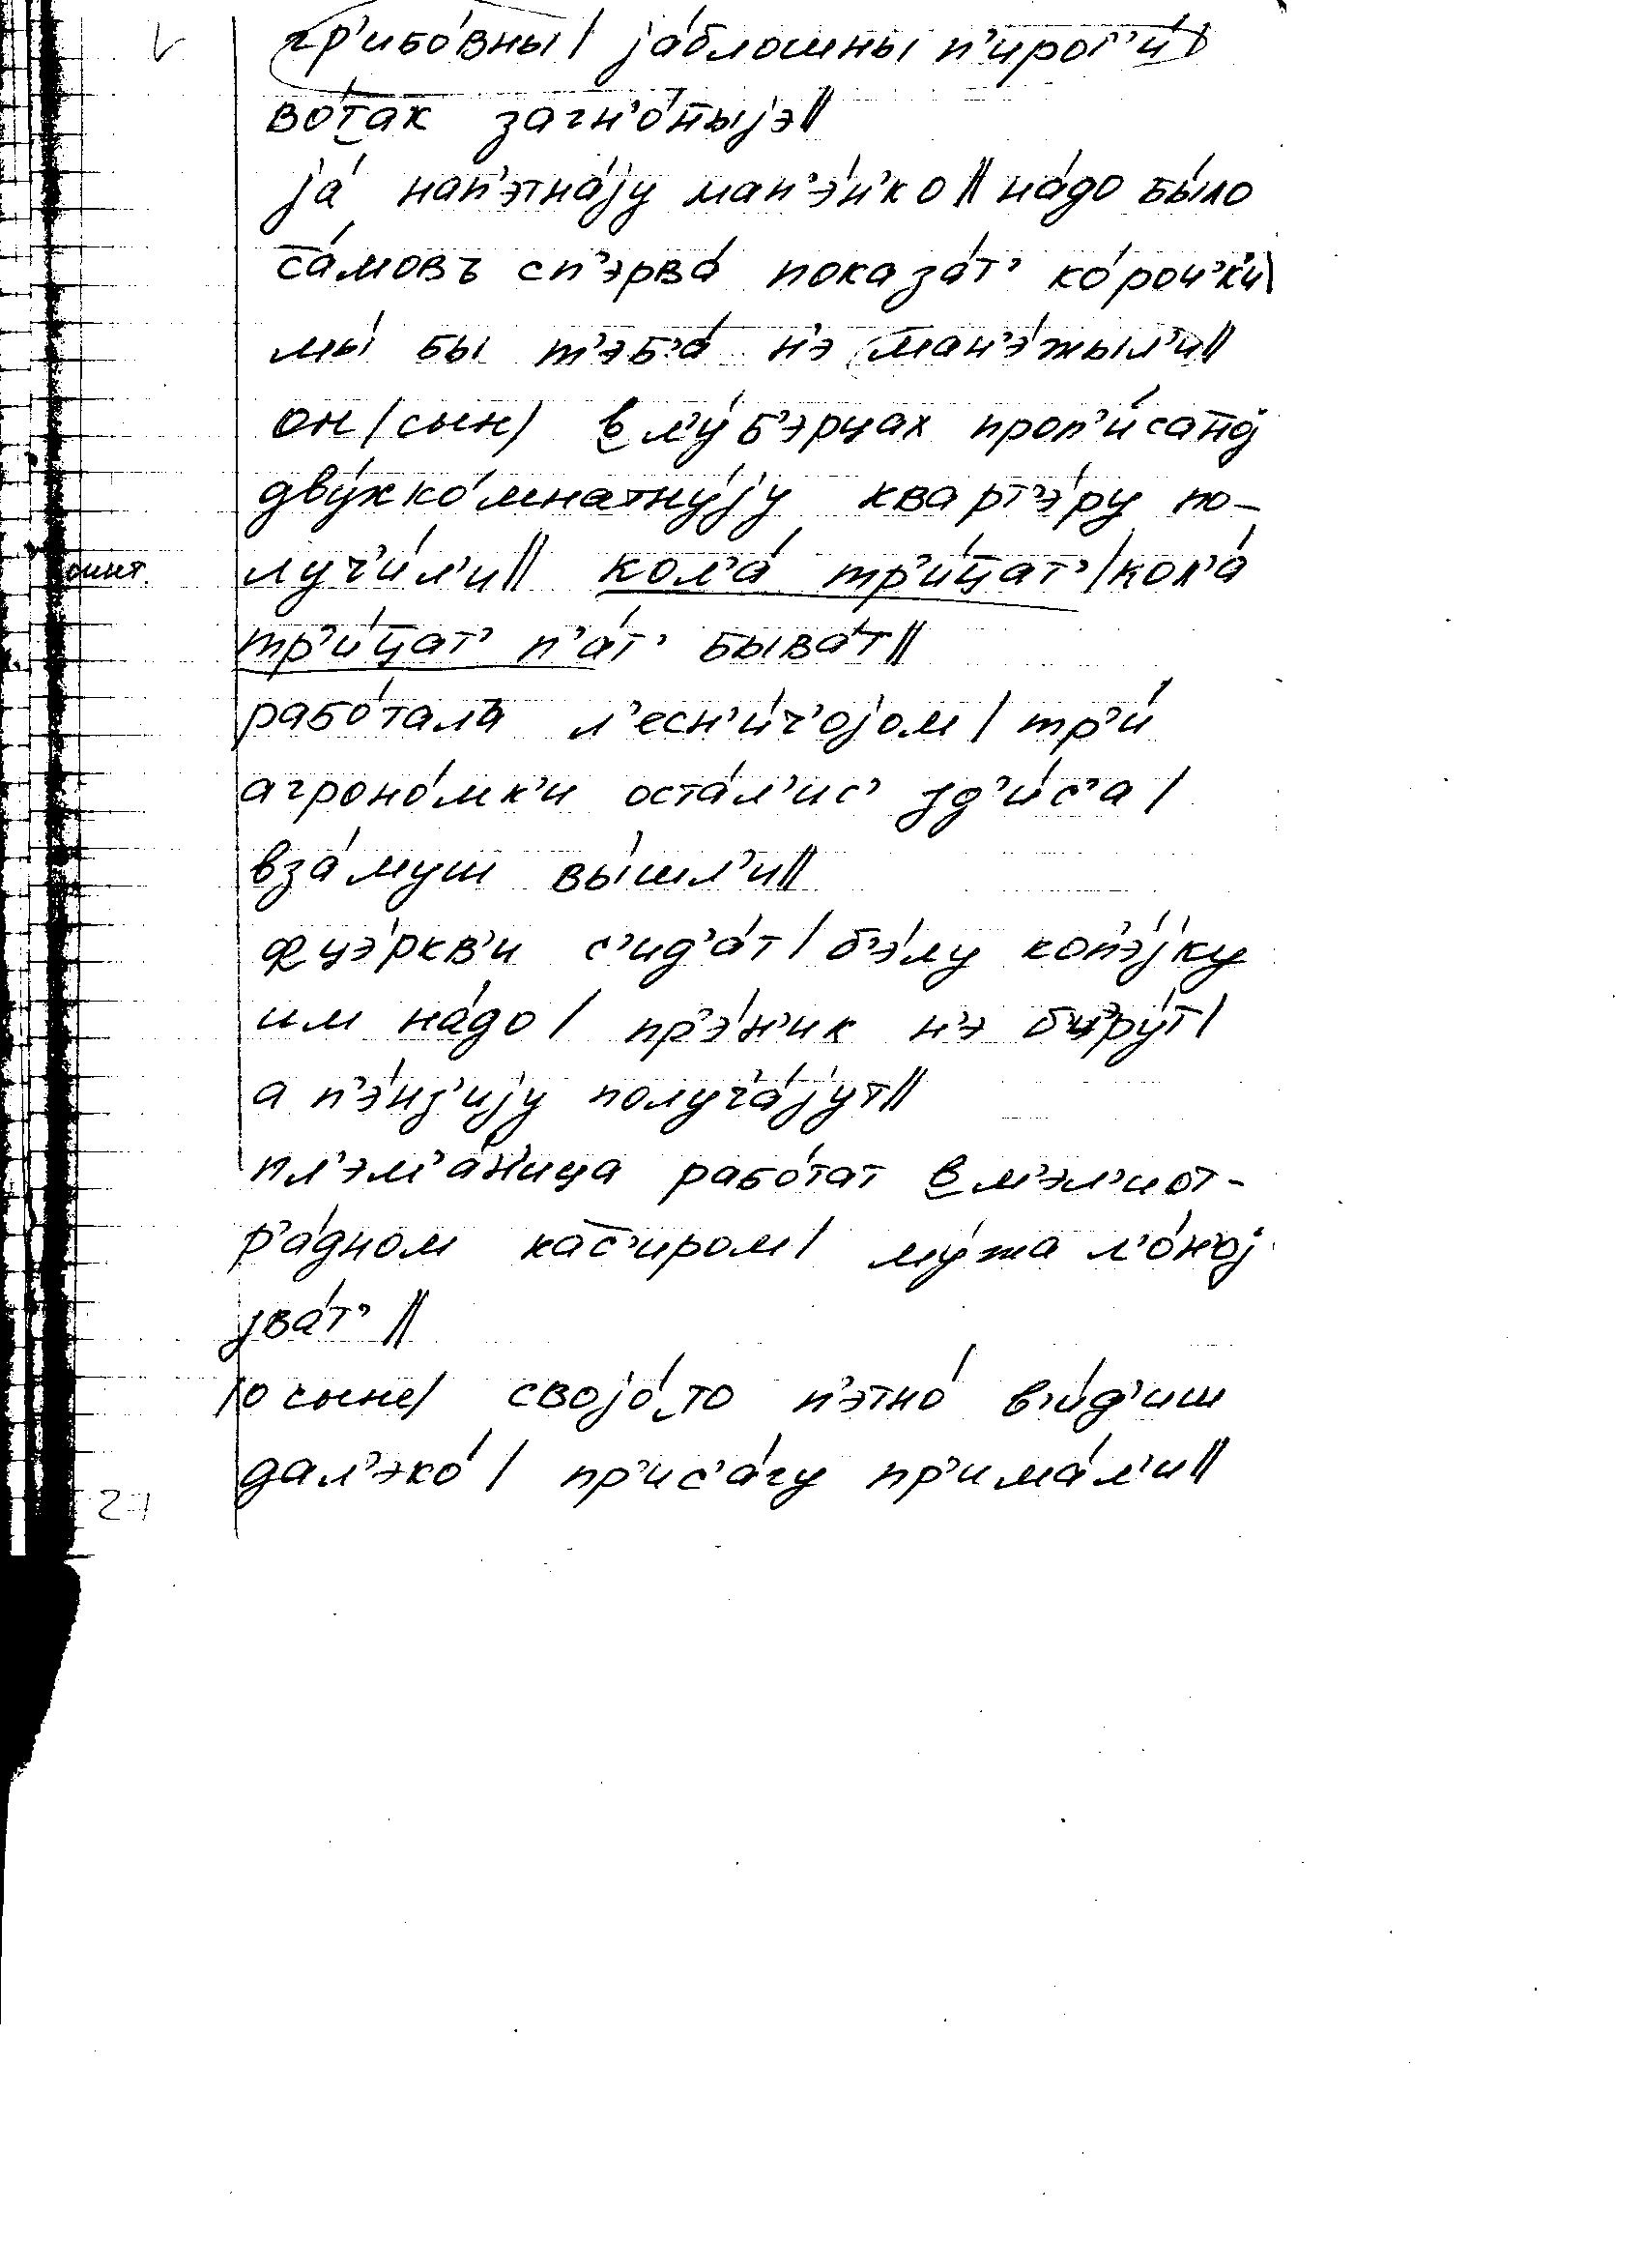 гр'ибо́вны/ jа́блошны п'ирог'и́/
во́так загн'о́тыjэ//
jа́ нап'этна́jу мап'э́и'ко// на́до бы́ло
са́мовъ сп'эрва́ показа́т' ко́рои'к'и/
мы́ бы т'эб'а́ н'э ман'э́жыл'и//
он (сын) в л'у́б'эрцах проп'и́саноj
дву́хко́мнатнуjу кварт'э́ру по-
луч'и́л'и// кол'а́ тр'и́цат'/кол'а́
синт.
тр'и́цат' п'а́т' быва́т//
рабо́тала л'есн'и́ч'оjом/ тр'и́
агроно́мк'и оста́л'ис' зд'и́с'а/
вза́муш вы́шл'и//
ф цэ́ркв'и с'ид'а́т/ б'э́лу коп'э́jку
им на́до/ пр'э́н'ик н'э б'иру́т/
а п'э́нз'иjу получ'а́jут//
пл'эм'а́н'ица рабо́тат в м'эл'иот-
р'а́дном кас'и́ром/ му́жа л'о́н'оj
зва́т'//
/о сыне/ своjо́ то п'этно́ в'и́д'иш
дал'эко́/ пр'ис'а́гу пр'има́л'и//
27